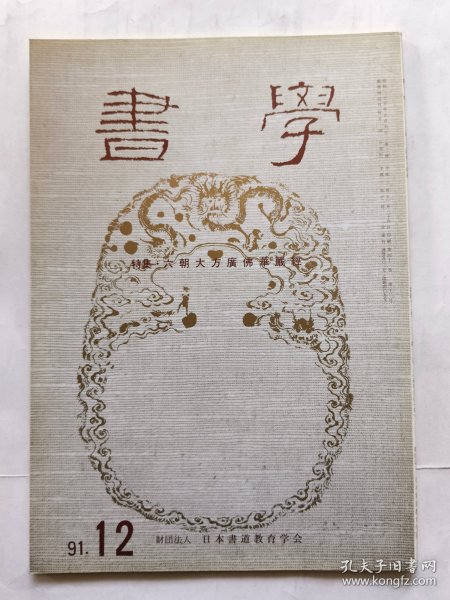 書學
特集・六朝大方廣佛華嚴經
91. 12
財団法人 日本書道教育学会
孔夫子旧书网
www.kongfz.com